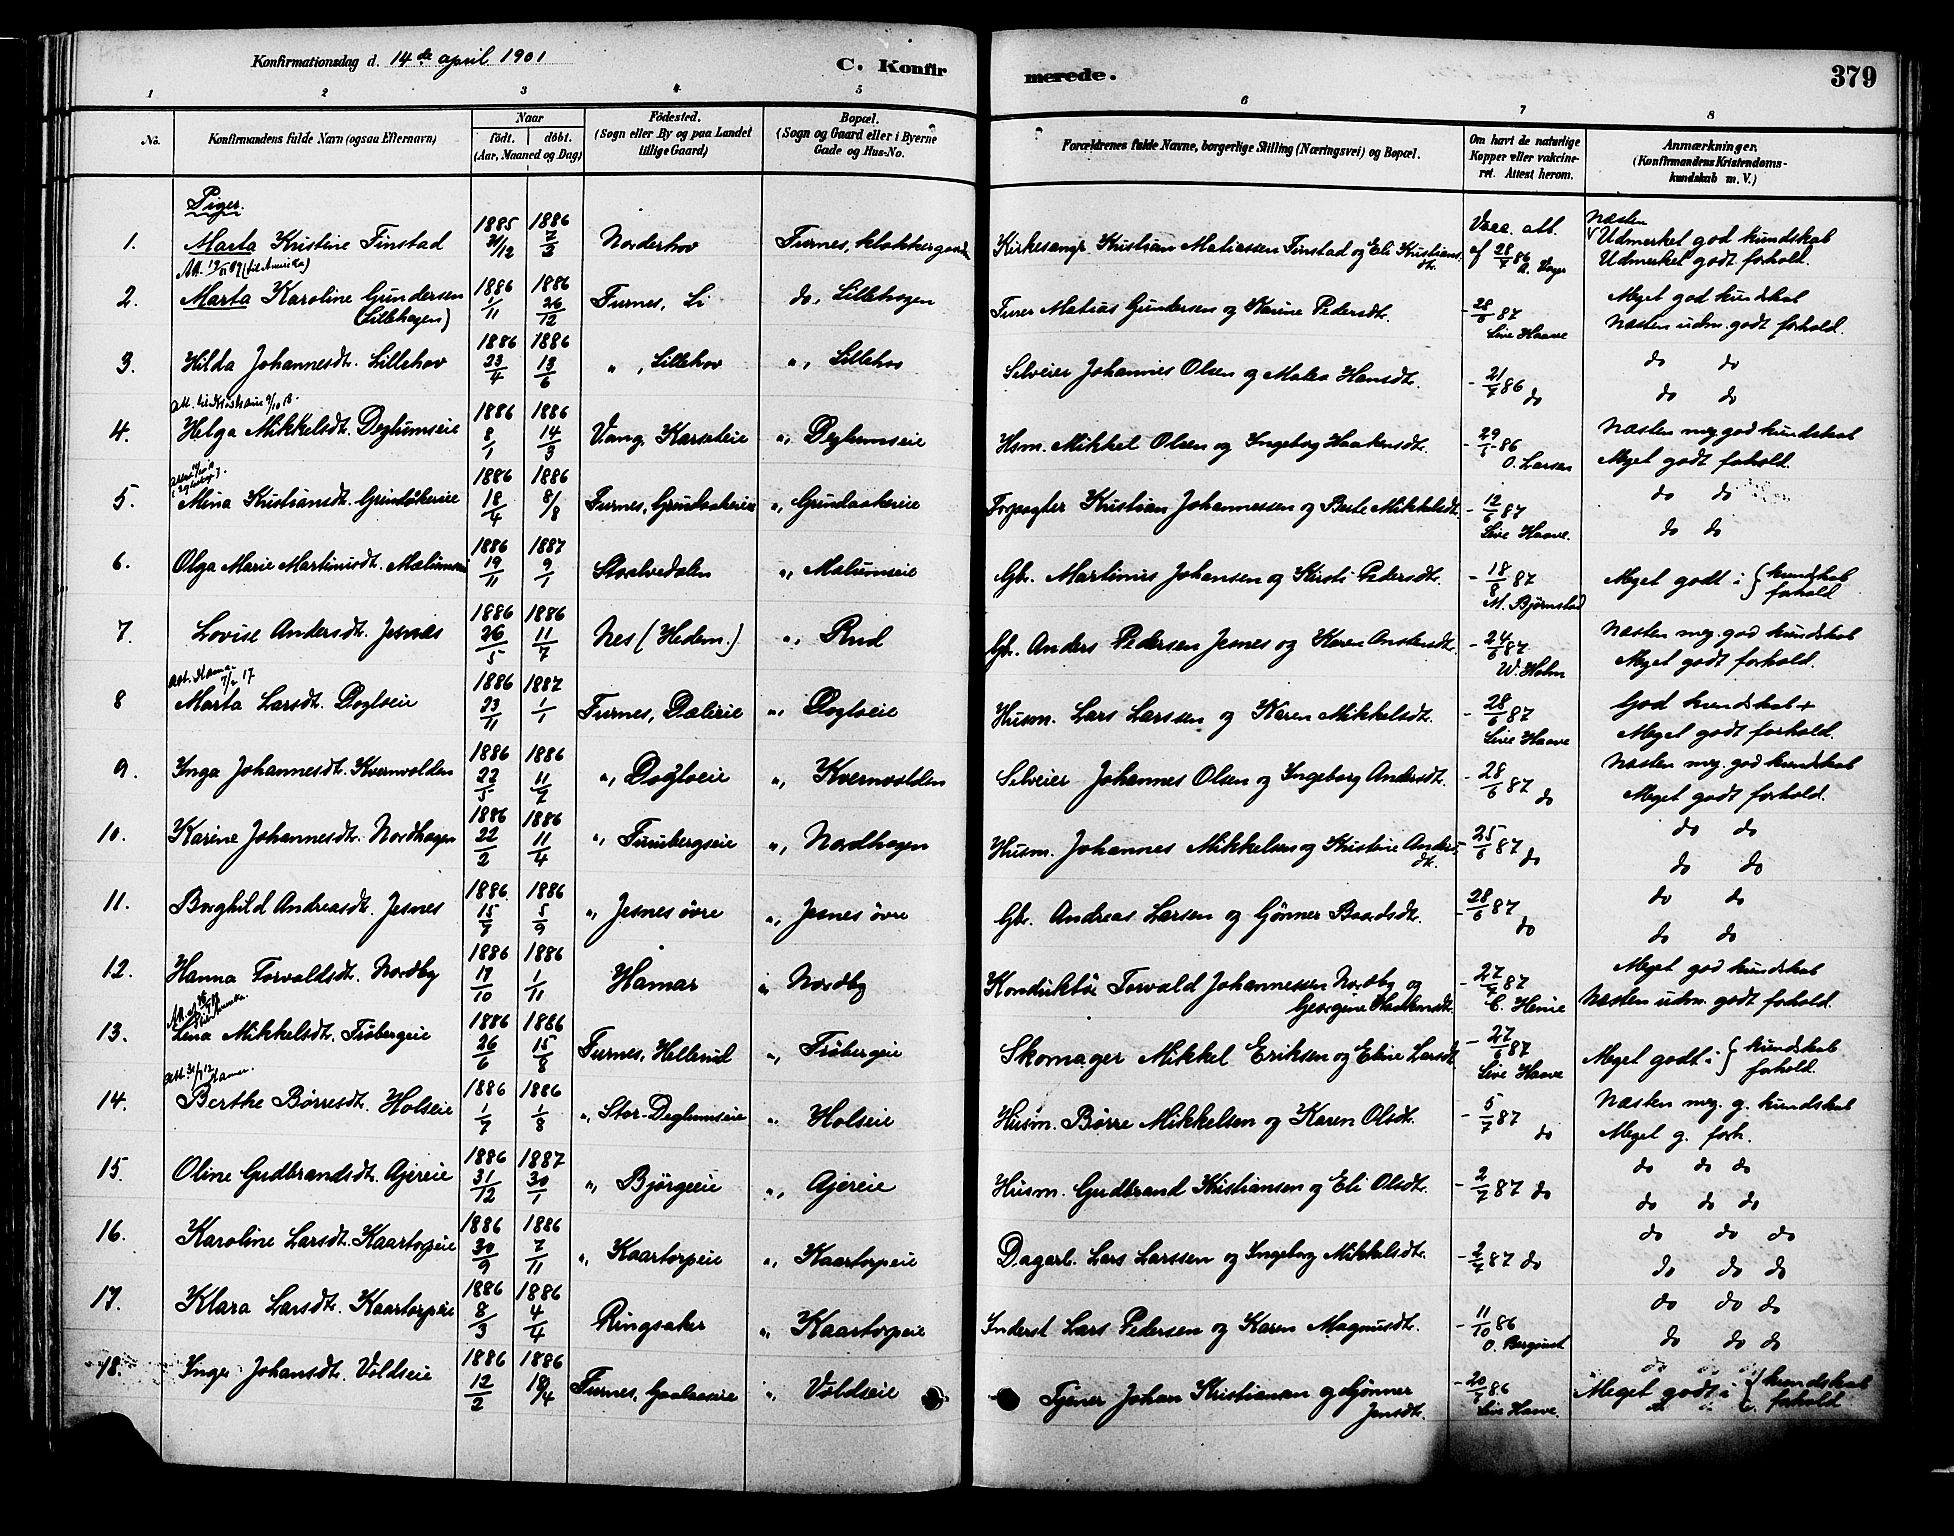 Konfirmationsdag d. 14de april 1901
C. Konfirmerede.
379
1 2 3 4 5 6 7 8
No.
Konfirmandens fulde Navn (ogsaa Efternavn)
Naar
födt. döbt.
(Aar, Maaned og Dag)
Födested.
(Sogn eller By og paa Landet
tillige Gaard)
Bopæl.
(Sogn og Gaard eller i Byerne
Gade og Hus-No.
Forældrenes fulde Navne, borgerlige Stilling (Næringsvei) og Bopæl.
Om havt de naturlige
Kopper eller vakcine-
ret. Attest herom.
Anmærkninger.
(Konfirmandens Kristendoms-
kundskab m. V.)
Piger.
1. Marta Kristine Finstad 1885 31/12 1886 7/3 Norderhov Furnes, klokkergaard Kirkesangr Kristian Matiassen Finstad og Eli Kristiansdt. Vacc. att. af 28/7 86 Næsten Udmerket god kundskab Udmerket godt forhold.
(til Amerika)
2. Marta Karoline Gundersen (Lillehagen) 1886 1/11 1886 26/12 Furnes, Li do, Lillehagen Matias Gundersen og Karine Pedersdt. - 28/6 87 Live Haave Meget god kundskab Næsten udm. godt forhold.
3. Hilda Johannesdt. Lillehov 1886 23/4 1886 13/6 ", Lillehov ", Lillehov Selveier Johannes Olsen og Matea Hansdt. - 21/7 86 do do do do do
4. Helga Mikkelsdt. Deglumseie 1886 8/1 1886 14/3 Vang, Karseteie ", Deglumseie Hsm. Mikkel Olsen og Ingeborg Haakensdt. O. Larsen Næsten meg. god kundskab Meget godt forhold.
5. Mina Kristiansdt. Grindåkereie 1886 18/4 1886 8/8 Furnes, Grindaakereie ", Grindaakereie Forpagter Kristian Johannessen og Berte Mikkelsdt. - 12/6 87 Live Haave. do do do do
6. Olga Marie Martinusdt. 1886 19/11 1887 9/1 Storelvedalen ", Malumseie Gbr. Martinus Johansen og Kirsti Pedersdt. - 18/8 87 M. Bjørnstad Meget godt i { kundskab forhold
7. Lovise Andersdt. Jesnæs 1886 26/5 1886 11/7 Nes (Hedem.) ", Rud Gbr. Anders Pedersen Jesnes og Karen Anstensdt. - 24/6 87 W. Holm Næsten meg. god kundskab Meget godt forhold.
8 Marta Larsdt. Dogloeie 1886 23/11 1887 1/1 Furnes, Dælieie ", Dogloeie Husm. Lars Larssen og Karen Mikkelsdt. - 28/6 87 Live Haave God kundskab + Meget godt forhold.
9. Inga Johannesdt. Kvernvolden 1886 22/5 1886 11/7 ", Dogloeie ", Kvernvolden Selveier Johannes Olsen og Ingeborg Andersdt. - 28/6 87 do Næsten meg. god kundskab Meget godt forhold.
10. Karine Johannesdt. Nordhagen 1886 22/2 1886 11/4 ", Furubergseie ", Nordhagen Husm. Johannes Mikkelsen og Kristine Andersdt. - 25/6 87 do do do do do
11. Borghild Andreasdt. Jesnes 1886 15/7 1886 5/9 ", Jesnes øvre ", Jesnes øvre Gbr. Andreas Larsen og Gønner Baardsdt. - 28/6 87 do do do do do
12. Hanna Torvaldsdt. Nordby 1886 17/10 1886 1/11 Hamar ", Nordby Konduktør Torvald Johannessen Nordby og Georgine - 27/7 87 Meget god kundskab Næsten udm. godt forhold.
13. Lina Mikkelsdt. Frøbergeie 1886 26/6 1886 15/8 Furnes, Hellerud ", Frøbergeie Skomager Mikkel Eriksen og Eline Larsdt - 27/6 87 Live Haave Meget godt i { kundskab forhold.
14. Berthe Børresdt. Holseie 1886 1/7 1886 1/8 ", Stor-Deglumseie ", Holseie Husm. Børre Mikkelsen og Karen Olsdt. - 5/7 87 do Næsten meg. g. kundskab Meget g. forh.
15. Oline Gudbrandsdt. Ajereie 1886 31/12 1887 30/1 ", Bjørgeeie ", Ajereie Husm. Gudbrand Kristiansen og Eli Olsdt. - 2/7 87 do do do do do do do
16. Karoline Larsdt. Kaartorpeie 1886 30/9 1886 7/11 ", Kaartorpeie ", Kaartorpeie Dagarb. Lars Larssen og Ingeborg Mikkelsdt. - 2/7 87 do do do do do do do
17. Klara Larsdt. Kaartorpeie 1886 8/3 1886 4/4 Ringsaker ", Kaartorpeie Inderst Lars Pedersen og Karen Magnusdt. - 11/10 86 do do do do do do
18. Inger Johansdt. Voldseie 1886 12/2 1886 18/4 Furnes, Gaalaaseie ", Voldseie Tjener Johan Kristiansen og Gønner Jensdt. 86 Live Haave. Meget godt i { kundskab forhold